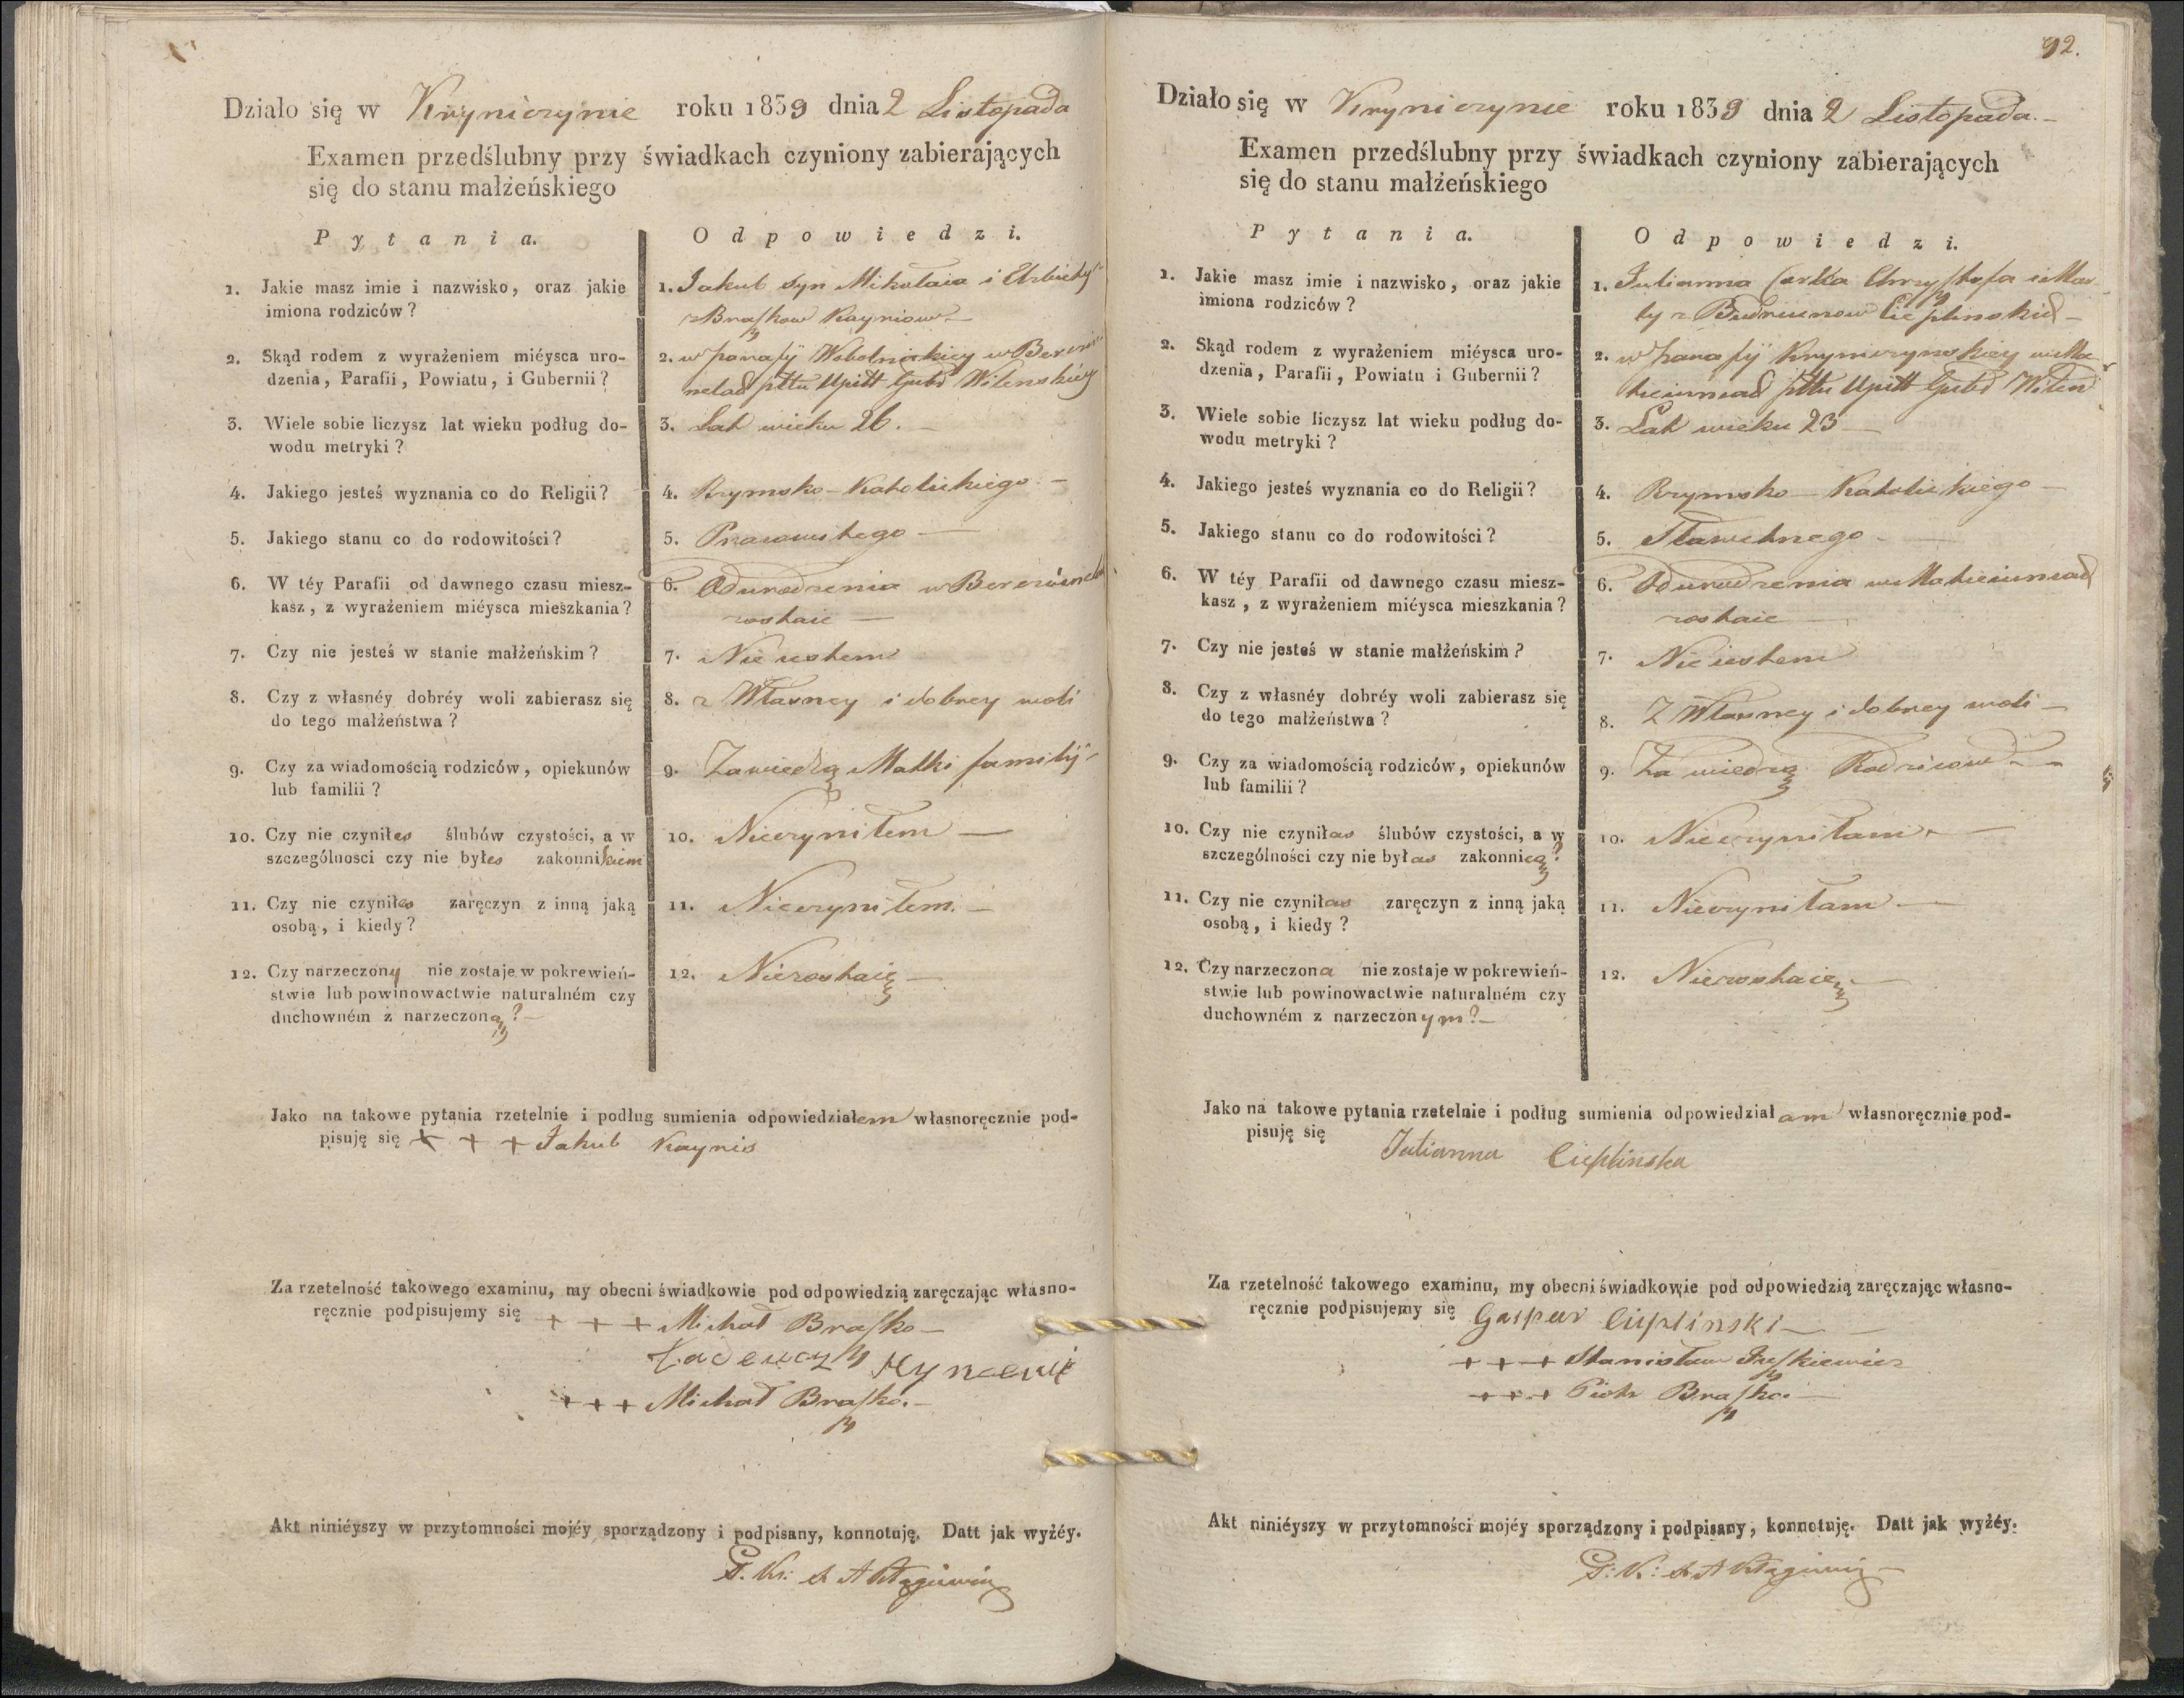 Działo się w Kryniczynie roku 1839 dnia 2 Listopada
Examen przedślubny przy świadkach czyniony zabierających
się do stanu małżeńskiego
Pytania. Odpowiedzi.
1. Jakie masz imie i nazwisko, oraz jakie
imiona rodziców?
1. Jakub syn Mikołaia i Elżbiety
z Braszkow Kayniow
2. Skąd rodem z wyrażeniem miéysca uro-
dzenia, Parafii, Powiatu, i Gubernii?
2. w parafij Wobolnickiey w
pttu Upitt Gubr Wilenskiey
3. Wiele sobie liczysz lat wieku podług do-
wodu metryki?
3. Lat wieku 26.
4. Jakiego jesteś wyznania co do Religii?
4. Rzymsko-Katolickiego
5. Jakiego stanu co do rodowitości?
5. Pracowitego
6. W téy Parafii od dawnego czasu miesz-
kasz, z wyrażeniem miéysca mieszkania?
6. Od urodzenia w
zostaie
7. Czy nie jesteś w stanie małżeńskim?
7. Nie iestem
8. Czy z własnéy dobréy woli zabierasz się
do tego małżeństwa?
8. z Własney i dobrey woli
9. Czy za wiadomością rodziców, opiekunów
lub familii?
9. Zawiedzą Matki familij
10. Czy nie czyniłes ślubów czystości, a w
szczególnosci czy nie byłes zakonnikiem
10. Nieczyniłem
11. Czy nie czyniłes zaręczyn z inną jaką
osobą, i kiedy?
11. Nieczyniłem.
12. Czy narzeczony nie zostaje w pokrewień-
stwie lub powinowactwie naturalném czy
duchowném z narzeczoną?
12. Niezostaię
Jako na takowe pytania rzetelnie i podług sumienia odpowiedziałem własnoręcznie pod-
pisuję się + + + Jakub Kaynis
Za rzetelność takowego examinu, my obecni świadkowie pod odpowiedzią zaręczając własno-
ręcznie podpisujemy się + + + Michał Braszko
+ + + Michał Braszko.
Akt niniéyszy w przytomności mojéy sporządzony i podpisany, konnotuję. Datt jak wyżéy.
92.
Działo się w Kryniczynie roku 1839 dnia 2 Listopada.
Examen przedślubny przy świadkach czyniony zabierających
się do stanu małżeńskiego
Pytania. Odpowiedzi.
1. Jakie masz imie i nazwisko, oraz jakie
imiona rodziców?
1. Julianna Corka Chrzysztofa i Mar
ty z Cieplinskich
2. Skąd rodem z wyrażeniem miéysca uro-
dzenia, Parafii, Powiatu i Gubernii?
2. w parafij Kryniczynskiey
pttu Upitt Gubr Wilen
3. Wiele sobie liczysz lat wieku podług do-
wodu metryki?
3. Lat wieku 23
4. Jakiego jesteś wyznania co do Religii?
4. Rzymsko-Katolickiego
5. Jakiego stanu co do rodowitości?
5. Sławetnego
6. W téy Parafii od dawnego czasu miesz-
kasz, z wyrażeniem miéysca mieszkania?
6. Od urodzenia
zostaie
7. Czy nie jesteś w stanie małżeńskim?
7. Nie iestem
8. Czy z własnéy dobréy woli zabierasz się
do tego małżeństwa?
8. Z Własney i dobrey woli
9. Czy za wiadomością rodziców, opiekunów
lub familii?
9. Za wiedzą Rodzicow
10. Czy nie czyniłas ślubów czystości, a w
szczególności czy nie byłas zakonnicą?
10. Nieczyniłam
11. Czy nie czyniłas zaręczyn z inną jaką
osobą, i kiedy?
11. Nieczyniłam
12. Czy narzeczona nie zostaje w pokrewień-
stwie lub powinowactwie naturalném czy
duchowném z narzeczonym?
12. Niezostaię
Jako na takowe pytania rzetelnie i podług sumienia odpowiedziałam własnoręcznie pod-
pisuję się
Julianna Cieplinska
Za rzetelność takowego examinu, my obecni świadkowie pod odpowiedzią zaręczając własno-
ręcznie podpisujemy się Gaspar Cieplinski
+ + + Stanisław
+ + + Piotr Braszko
Akt niniéyszy w przytomności mojéy sporządzony i podpisany, konnotuję. Datt jak wyżéy.